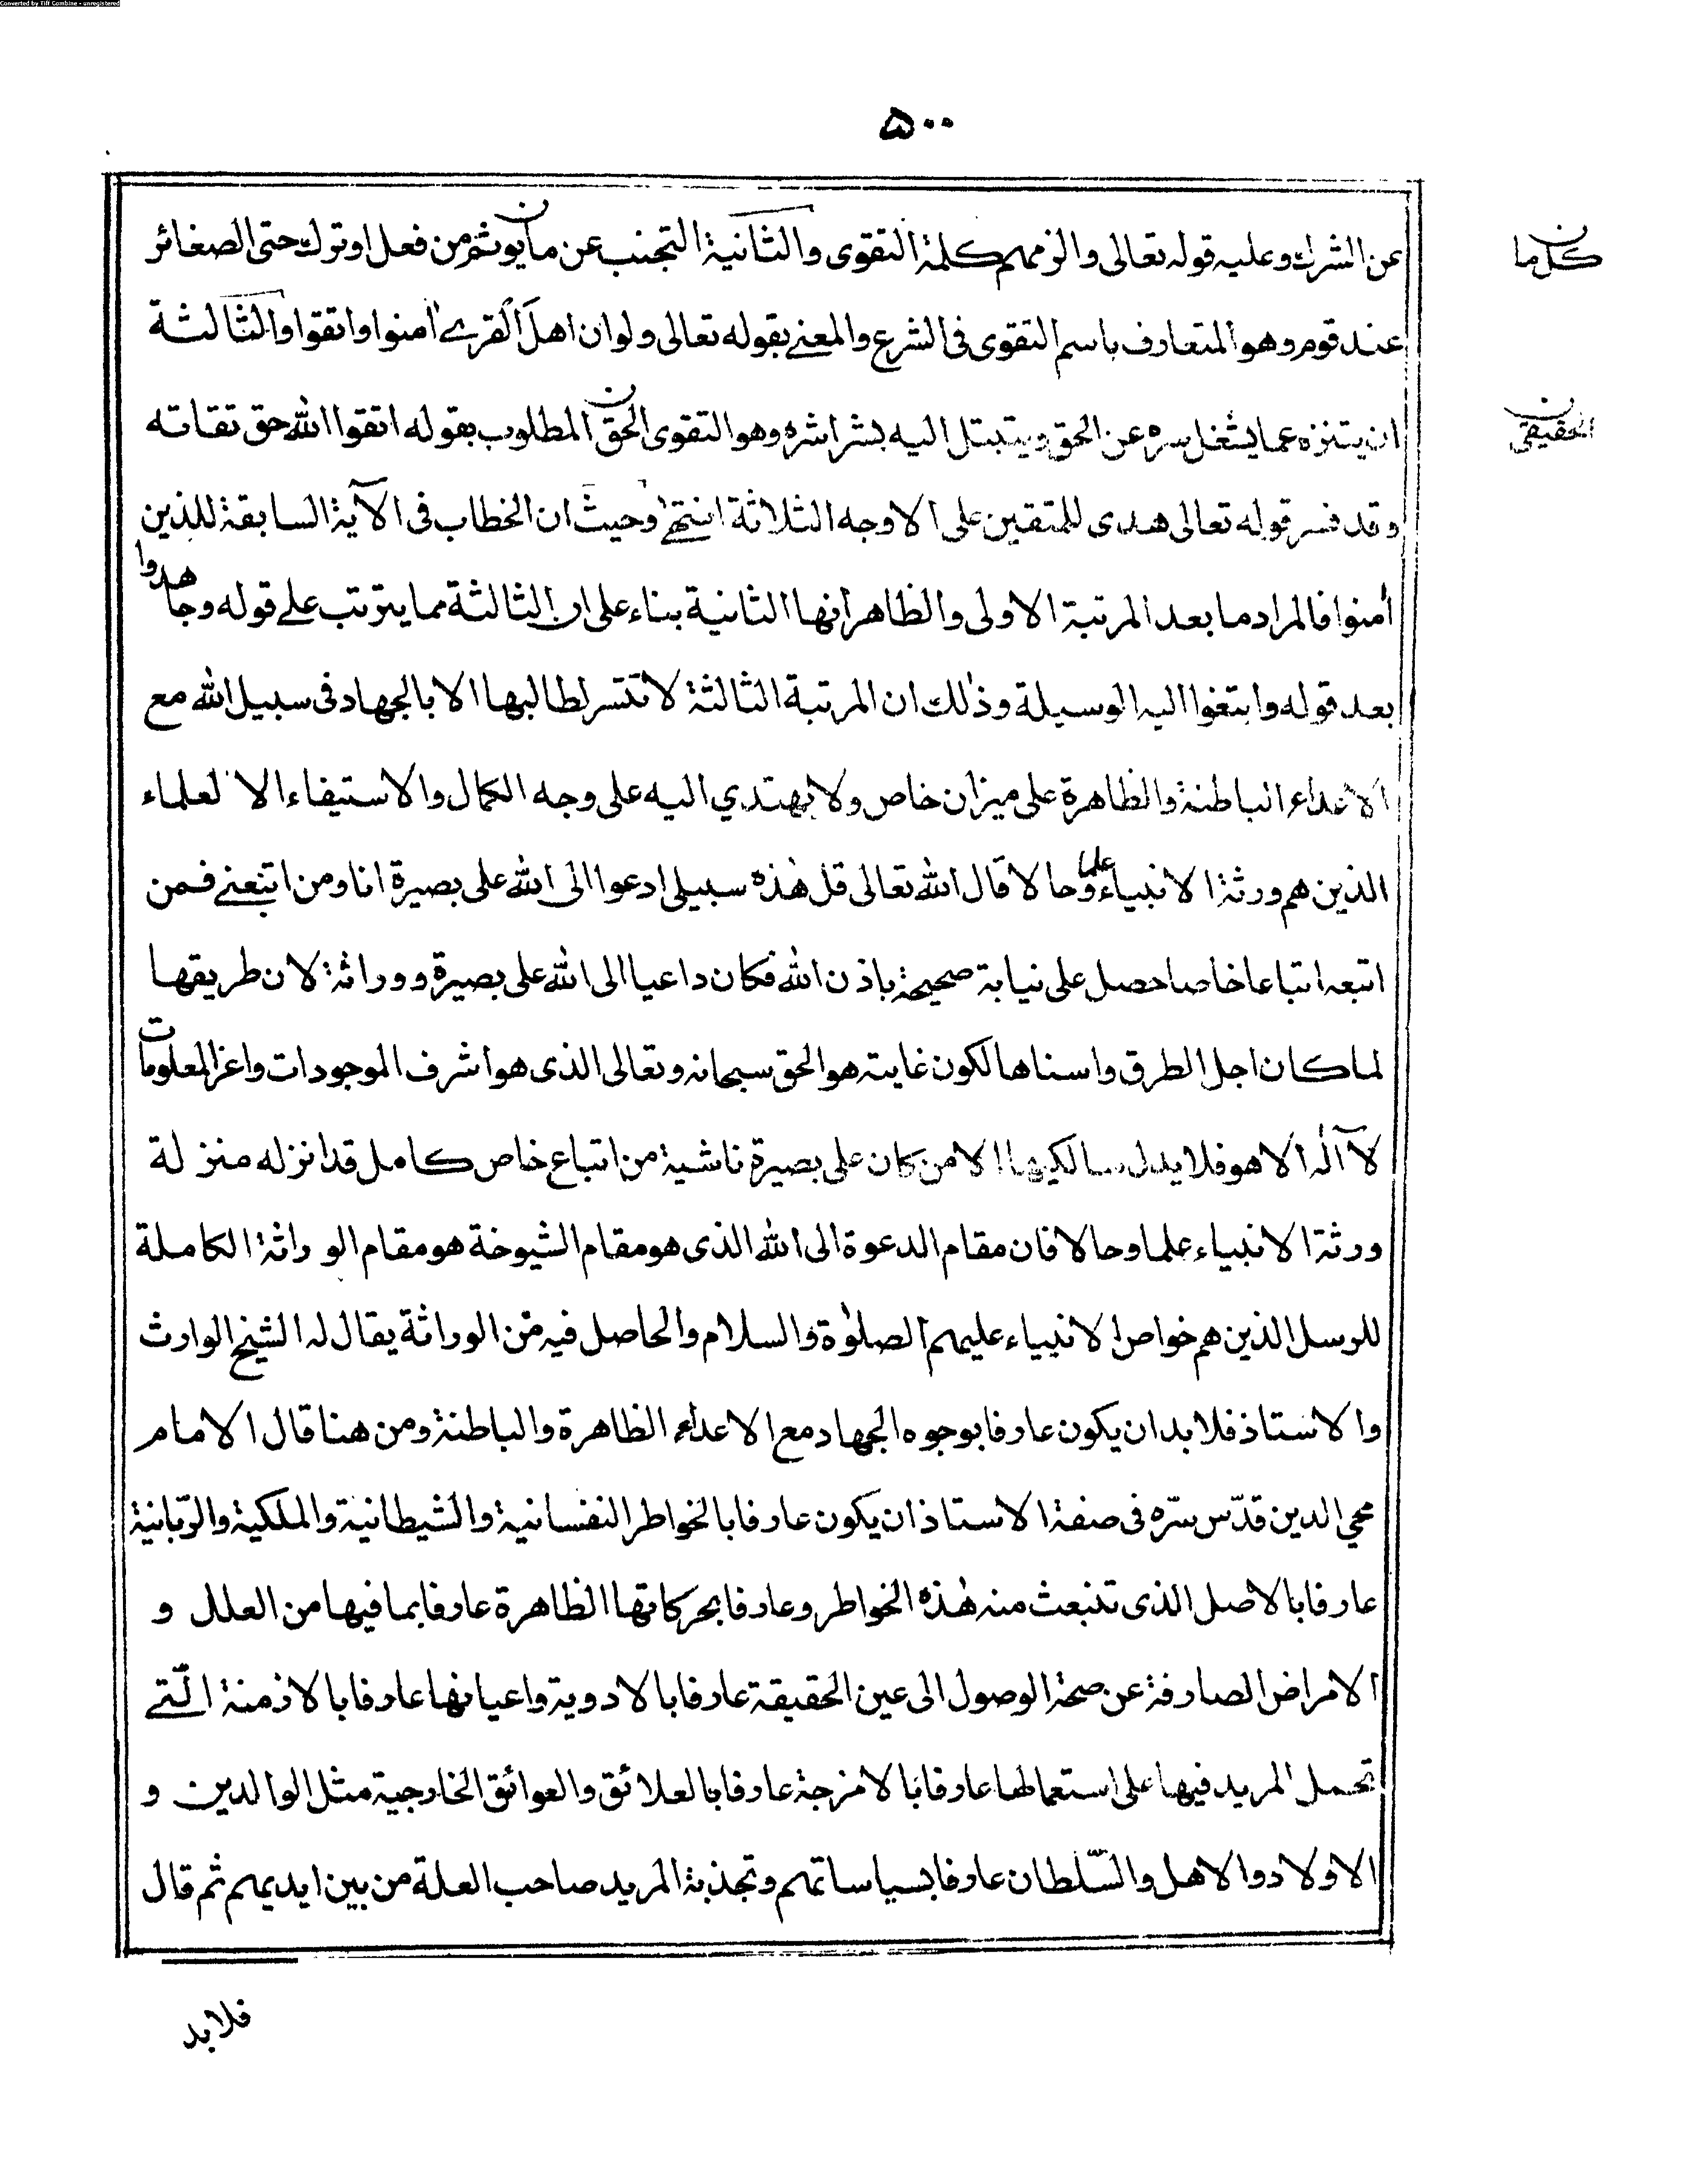 Converted by Tiff Combine - unregistered
۵۰۰
عن الشرك وعليه قوله تعالى والزمهم كلمة التقوى والثانية التجنب عن ما يوثم من فعل او ترك حتى الصغائر
كل ما
عند قوم وهو المتعارف باسم التقوى فى الشرع والمعنے بقوله تعالى ولو ان اهل القرے اٰمنوا واتقوا والثالثة
ان يتنزه عما يشغل سره عن الحق ويتبتل اليه بشراشره وهو التقوى الحق المطلوب بقوله اتقوا الله حق تقاته
الحقيقى
وقد فسر قوله تعالى هدى للمتقين على الاوجه الثلاثة انتهٰى وحيث ان الخطاب فى الآية السابقة للذين
اٰمنوا فالمراد ما بعد المرتبة الاولى والظاهر انها الثانية بناء على ان الثالثة مما يترتب علے قوله وجاهدوا
بعد قوله وابتغوا اليه الوسيلة وذٰلك ان المرتبة الثالثة لا تتسر لطالبها الا بالجهاد فى سبيل الله مع
الاعداء الباطنة والظاهرة على ميزان خاص ولا يهتدي اليه على وجه الكمال والاستيفاء الا لعلماء
الذين هم ورثة الانبياء علما وحالا قال الله تعالى قل هٰذه سبيلى ادعوا الى الله على بصيرة انا ومن اتبعنے فمن
اتبعه اتباعا خاصا حصل على نيابة صحيحة باذن الله فكان داعيا الى الله على بصيرة ووراثة لان طريقها
لما كان اجل الطرق واسناها لكون غايته هو الحق سبحانه وتعالى الذى هو اشرف الموجودات واعز المعلومات
لآ الٰه الا هو فلا يدل سالكيها الا من كان على بصيرة ناشية من اتباع خاص كامل قد انزله منزلة
ورثة الانبياء علما وحالا فان مقام الدعوة الى الله الذى هو مقام الشيوخة هو مقام الوراثة الكاملة
للرسل الذين هم خواص الانبياء عليهم الصلوٰة والسلام والحاصل فيه من الوراثة يقال له الشيخ الوارث
والاستاذ فلا بد ان يكون عارفا بوجوه الجهاد مع الاعداء الظاهرة والباطنة ومن هنا قال الامام
محي الدين قدّس سرّه فى صفة الاستاذ ان يكون عارفا بالخواطر النفسانية والشيطانية والملكية والربّانية
عارفا بالاصل الذى تنبعث منه هٰذه الخواطر وعارفا بحركاتها الظاهرة عارفا بما فيها من العلل و
الامراض الصارفة عن صحة الوصول الى عين الحقيقة عارفا بالادوية واعيانها عارفا بالازمنة الّتے
تحمل المريد فيها على استعمالها عارفا بالامزجة عارفا بالعلائق والعوائق الخارجية مثل الوالدين و
الاولاد والاهل والسّلطان عارفا بسياساتهم وتجذبة المريد صاحب العلة من بين ايديهم ثم قال
فلابد